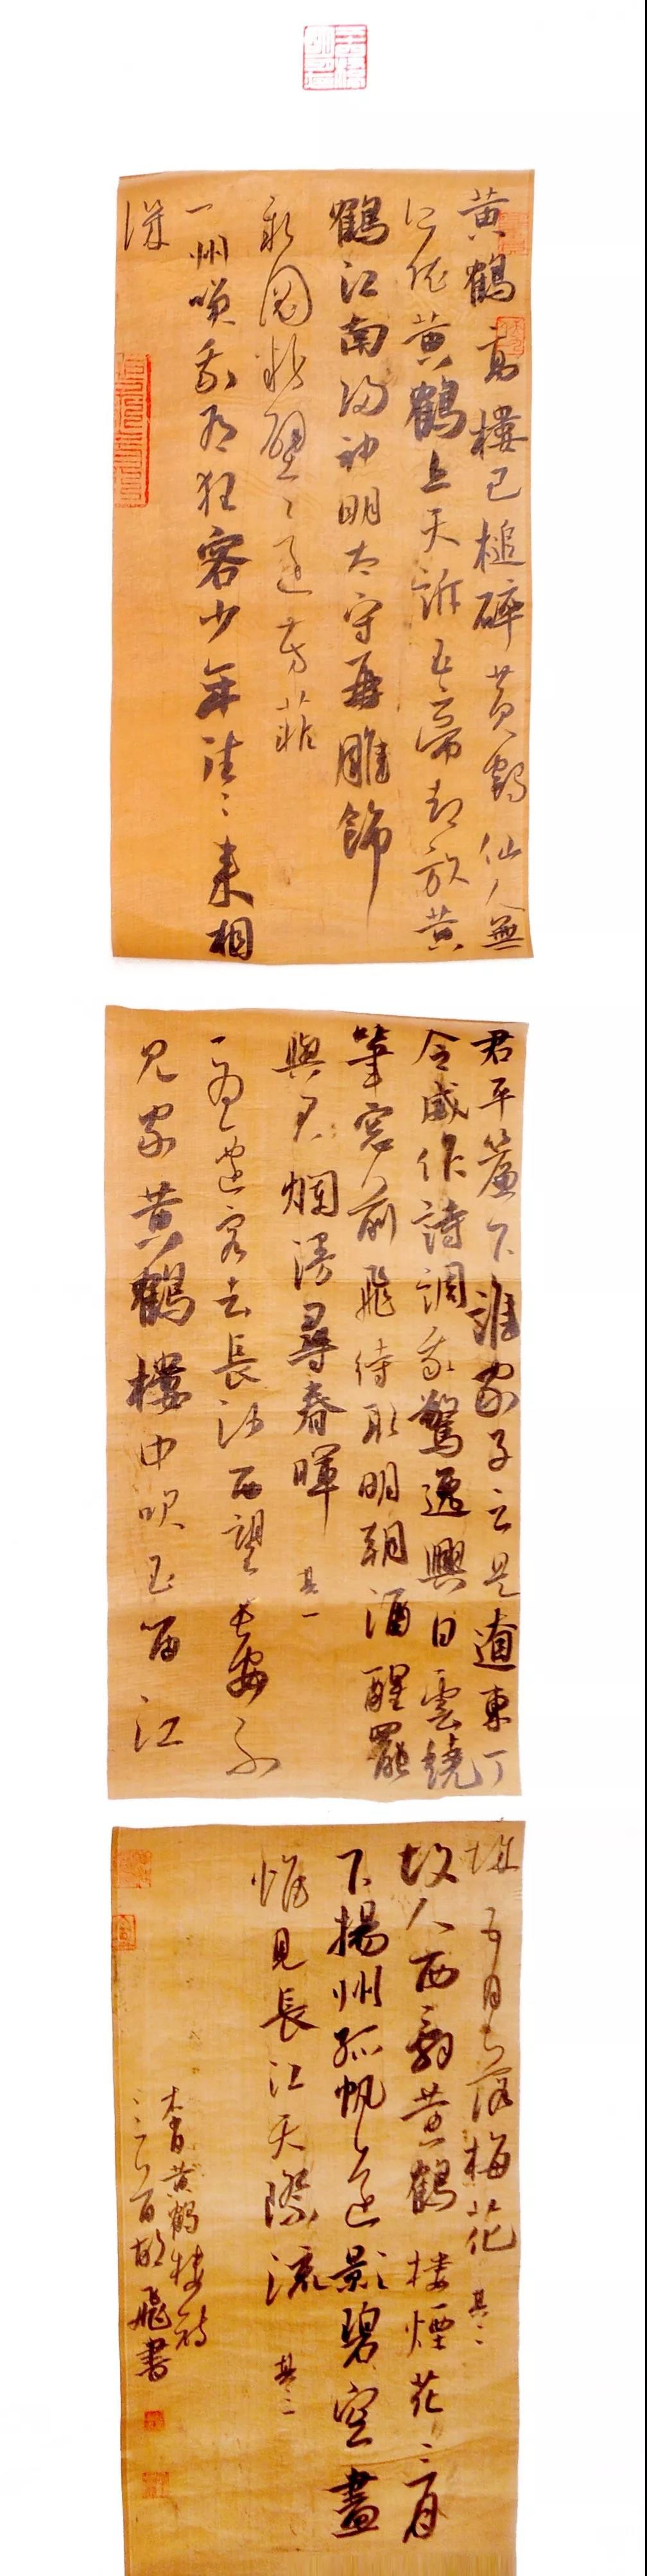 黄鶴高樓已槌碎黄鶴仙人無
所依黄鶴上天訴玉帝却放黄
鶴江南歸神明太守再雕飾
新圖粉壁還芳菲
一州笑我為狂客少年往〻来相
譏
君平簾下誰家子云是遼東丁
令威作詩調我驚逸興白雲繞
筆窗前飛待取明朝酒醒罷
與君爛漫尋春暉 其一
一為遷客去長沙西望長安不
見家黄鶴樓中吹玉笛江
城五月落梅花 其二
故人西辭黄鶴樓煙花三月
下揚州孤帆遠影碧空盡
惟見長江天際流 其三
李白黄鶴樓詩
三首胡飛書